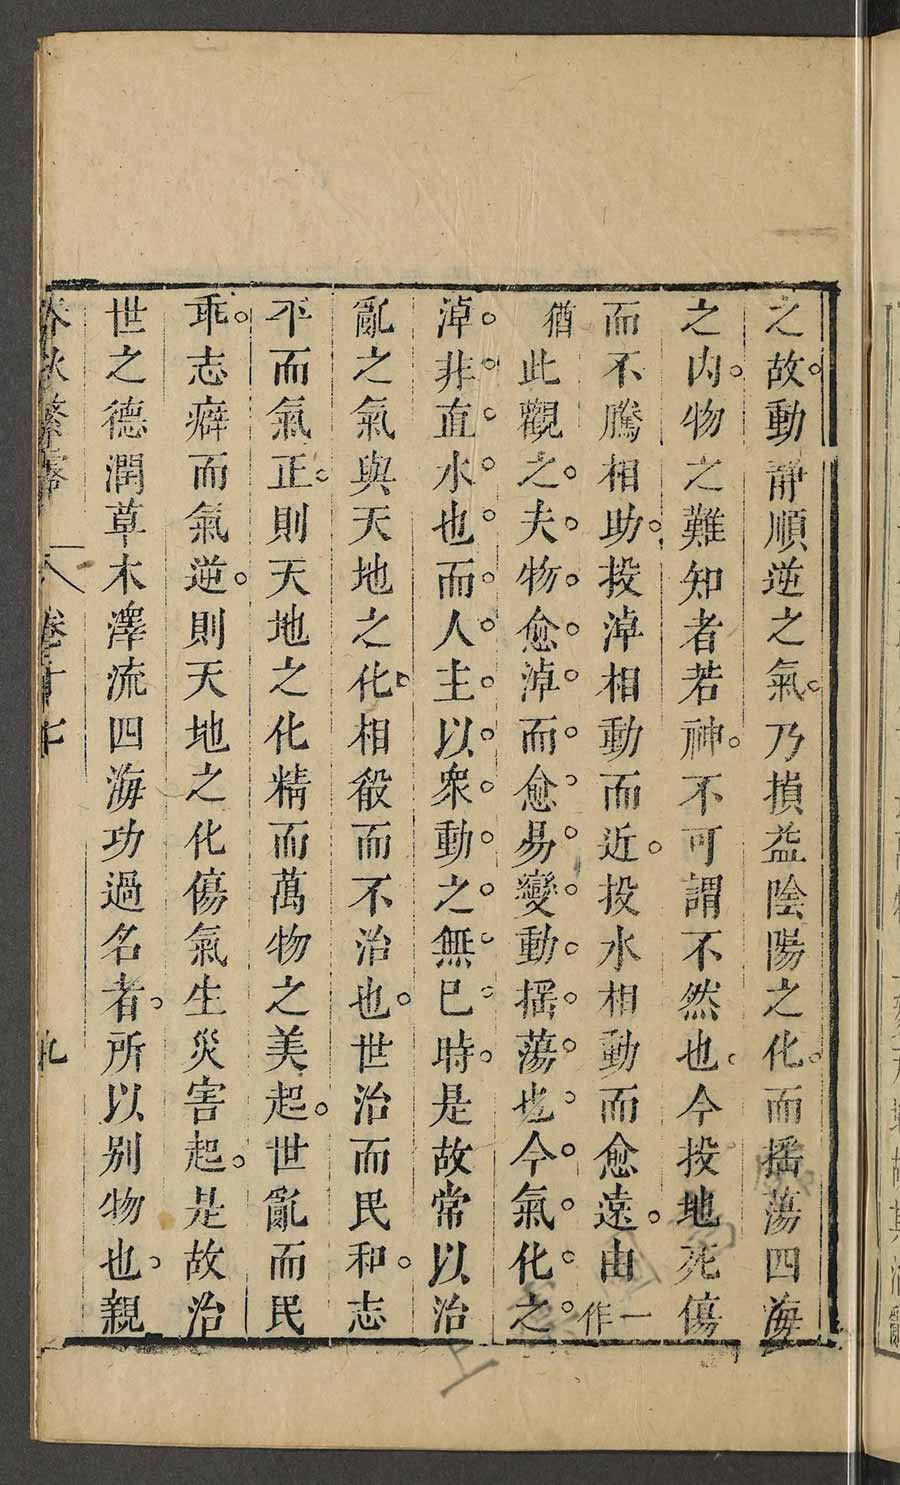 之故。動靜順逆之氣。乃損益陰陽之化。而搖蕩四海
之內。物之難知者若神。不可謂不然也。今投地死傷
而不騰相助。投淖相動而近。投水相動而愈遠。由一作
猶此觀之。夫。物。愈。淖。而。愈。易。變。動。搖。蕩。也。今。氣。化。之。
淖。非。直。水。也。而。人。主。以。衆。動。之。無。已。時。是故常以治
亂之氣與天地之化。相殽而不治也。世治而民和。志
平而氣正。則天地之化精而萬物之美起。世亂而民
乖。志癖而氣逆。則天地之化傷氣生災害起。是故治
世之德潤草木澤流四海功過名者。所以別物也。親
春秋繁露 卷十七 九